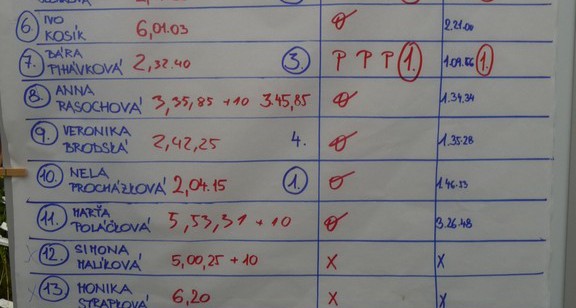 6. IVO KOSÍK 6,01.03 Ø 2.21.00
7. BÁRA PIHÁVKOVÁ 2,32.40 3. P P P 1. 1.09.06 1.
8. ANNA RASOCHOVÁ 3,35,85 +10 3.45,85 Ø 1.34.34
9. VERONIKA BRODSKÁ 2,42,25 4. Ø 1.35.28
10. NELA PROCHÁZKOVÁ 2,04.15 1. Ø 1.46.53
11. MARŤA POLÁČKOVÁ 5,53,31 + 10 Ø 3.26.48
12. SIMONA MALÍKOVÁ 5,00,25 + 10 X X
13. MONIKA STRAPKOVÁ 6,20 X X